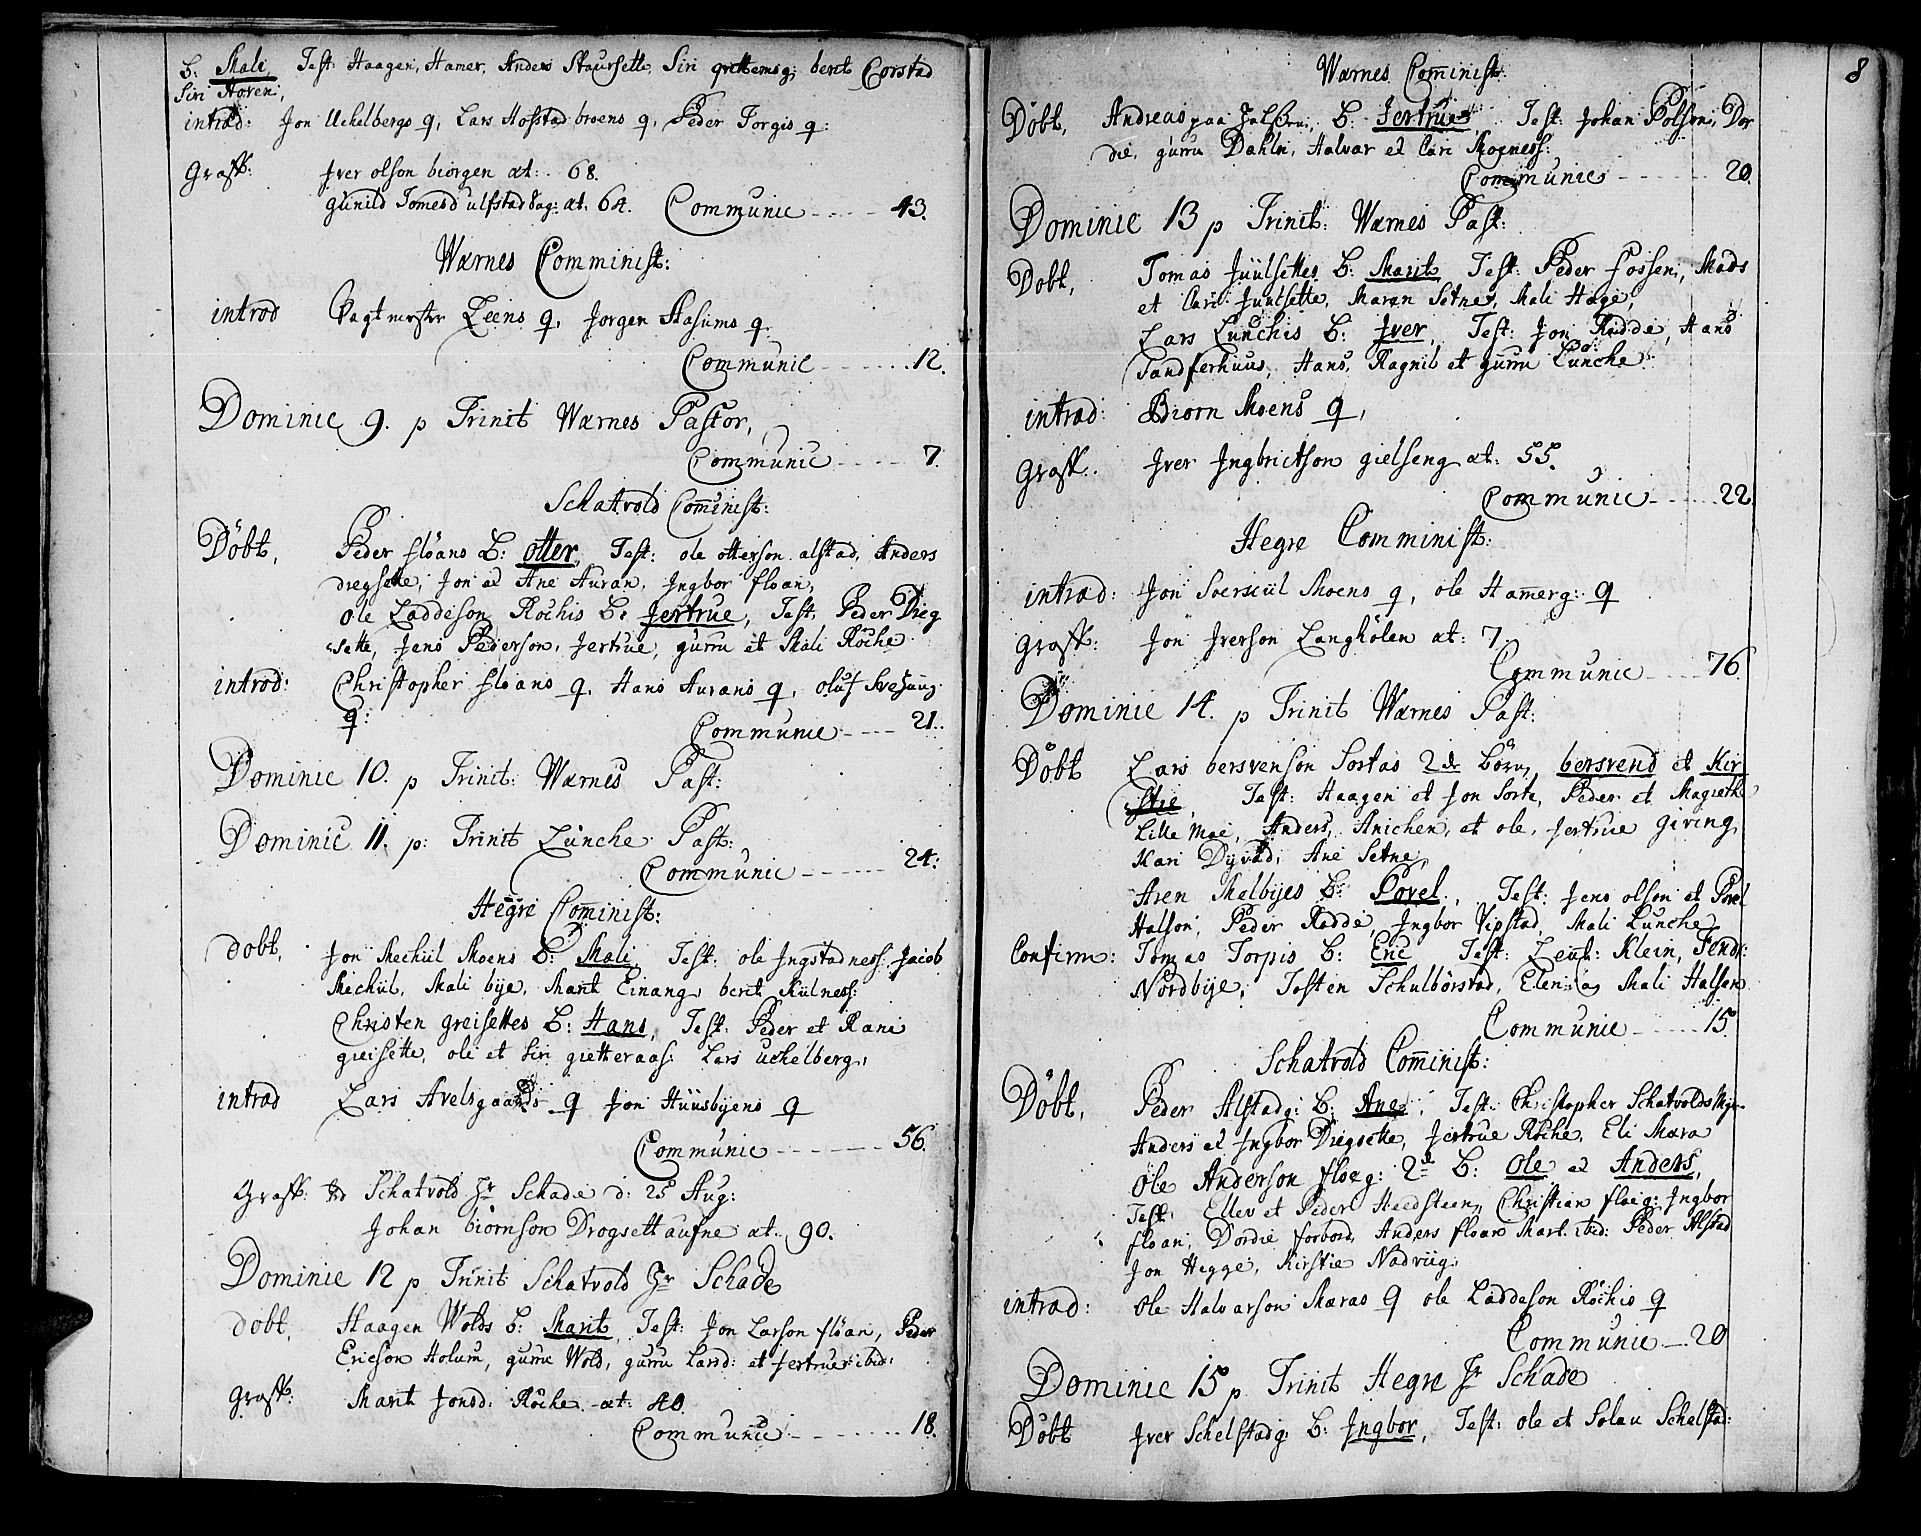 b: Mali, Test: Haagen, Hamer, Anders Staursette, Siri grettemsg, berit Corstad
Siri Hoven,
introd: Jon Uchelbergs q, Lars Hofstad broens q, Peder Torgis q:
Graff: Jver olson biörgen æt: 68.
gunild Tomesd ulfstad Vag: æt. 64. Communic ----- 43.
Wærnes Comminist:
introd Vagtmester Leens q, Jorgen Stasums q.
Communic ------ 12.
Dominic 9. p Trinit Wærnes Pastor,
Communic ---- 7.
Schatvold Cominist:
Döbt, Peder flöans b: otter, Test: ole otterson alstad, Anders
diegsette, Jon et Ane Auran, Jngbor floan,
Ole Laddeson Röchis b: Jertrue, Test Peder Dieg
sette, Jens Pederson, Jertrue, gurru et Mali Röche
introd: Christopher flöans q, Hans Aurans q, oluf
q: Communic ---- 21.
Dominic 10. p Trinit: Wærnes Past:
Dominic 11. p: Trinit Lünche Past:
Communic ------ 24:
Hegre Cominist:
döbt, Jon Mechiil Moens b: Mali, Test: ole Jngstadness Jacob
Mechiil, Mali bije, Marit Einang, berit Kiilness:
Christen greisettes b: Hans, Test: Peder et Rane
greisette, ole et Siri gietteraas: Lars uchelberg,
introd Lars Avelsgaards q Jon Huusbyens q
Communic ------- 56.
Graff: ved Schatvold Hr Schade d: 25 Aug:
Johan biörnson Drogsett aufne æt: 90.
Dominic 12 p Trinit Schatvold Hr Schade
döbt, Haagen Wolds b: Marit, Test: Jon Larson flöan, Peder
Ericson Holum, gurru Wold, gurru Larsd: et Jertrue ibid:
Graff: Marit Jonsd: Röche æt: 40.
Communic ------- 18.
8
Wærnes Cominist:
Döbt, Andreas paa b: Jertrue, Test: Johan Polson, Dor
die, gurru Dahln, Halvar et Cari Moeness:
Communic ------- 20.
Dominic 13 p Trinit: Wærnes Past:
Döbt, Tomas Juulsettes b: Marit, Test: Peder fossen, Mads
et Cari Juulsette, Maren Setne, Mali Hage,
Lars Lünchis b: Jver, Test: Jon Rødde, Hans
Sandferhuus, Hans, Ragnil et gurru Lünche
introd: Biorn Moens q,
Graff: Jver Jngbrictson gielseng æt: 55.
Communic ---- 22.
Hegre Comminist:
introd: Jon Soersciil Moens q, ole Hamerg: q
Graff: Jon Jverson Langhölen æt: 7.
Communic ---- 76.
Dominic 14. p Trinit Wærnes Past:
Döbt Lars bersvenson Sortas 2de börn, bersvend et Kir
stie, Test: Haagen et Jon Sorte, Peder et Magrethe
Lille Moe, Anders, Anichen, et ole, Jertrue Giving
Kari Dyvad, Ane Setne,
Aren Melbyes b: Povel, Test: Jens olson et Povel
Halson, Peder Rødde, Jngbor Vipstad, Mali Lünche
Confirm: Tomas Torpis b: Eric Test: Leut: Klein, Fendr:
Nordbye, Tosten Schulbörstad, Elen og Mali Halsen
Communic ----- 15
Schatvold Cominist:
Döbt, Peder Alstadg: b: Ane, Test: Christopher Schatvolds
Anders et Jngbor Diegsette, Jertrue Röche, Eli Mæra
Ole Anderson floeg: 2de b: Ole et Anders,
Test: Ellev et Peder Heedsteen, Christian floeg: Jngbor
floan, Dordie forbord, Anders floan Marit ibid: Peder Alstad
Jon Hegge, Kirstie Nadviig
introd: Ole Halvarson Mæras q ole Laddeson Röchis q
Communic -- 20
Dominic 15 p Trinit Hegre Hr Schade
Döbt Jver Schelstadg b: Jngbor, Test: ole et Solau Schelstad: